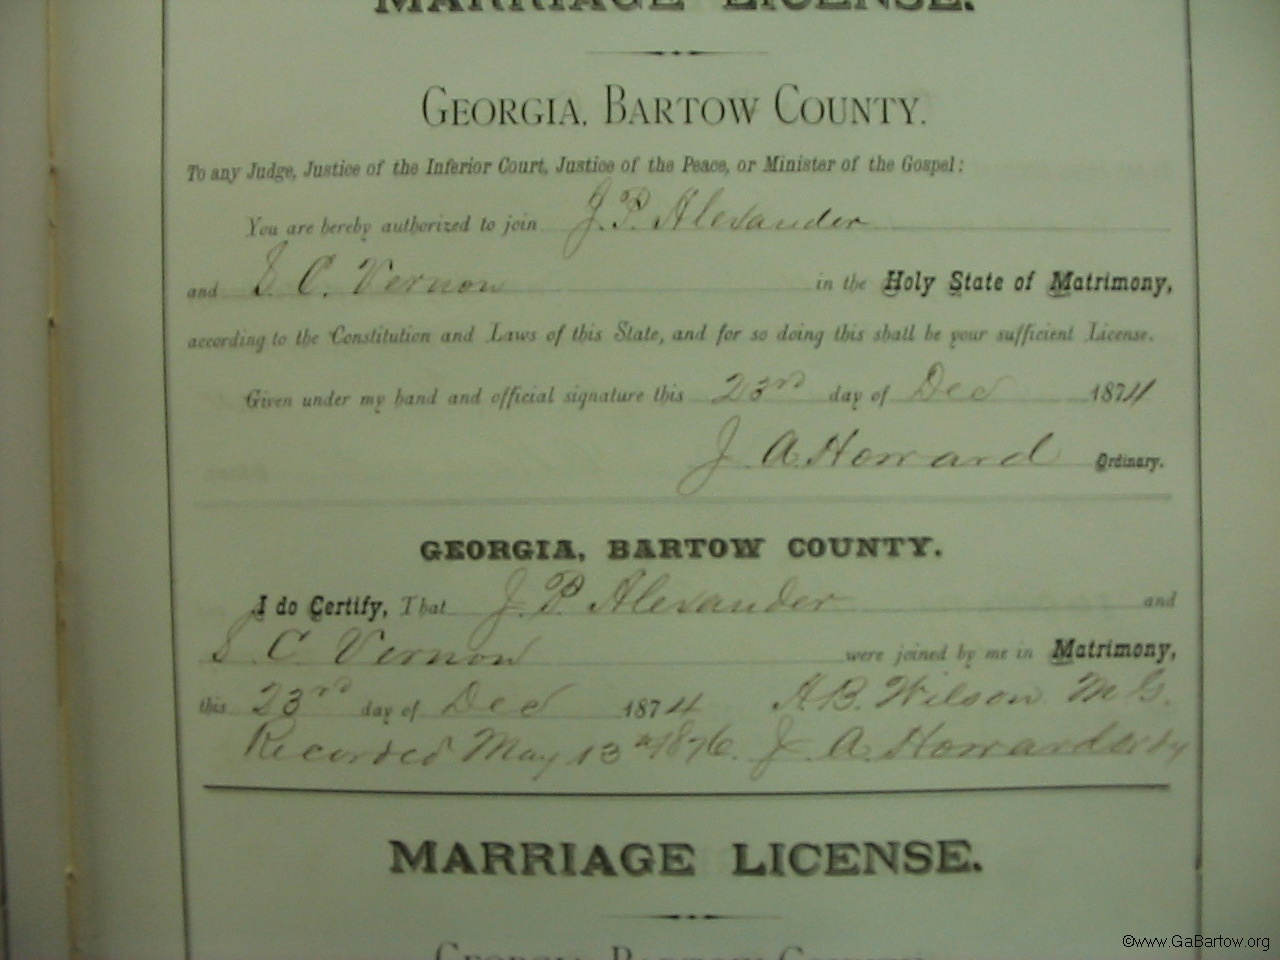 MARRIAGE LICENSE.
GEORGIA, BARTOW COUNTY.
To any Judge, Justice of the Inferior Court, Justice of the Peace, or Minister of the Gospel:
You are hereby authorized to join J. P. Alexander
and S C. Vernon in the Holy State of Matrimony,
according to the Constitution and Laws of this State, and for so doing this shall be your sufficient License.
Given under my hand and official signature this 23rd day of Dec 1874
J A Howard Ordinary.
GEORGIA, BARTOW COUNTY.
I do Certify, That J. P. Alexander and
S C. Vernon were joined by me in Matrimony,
this 23rd day of Dec 1874 A B. Wilson M G.
Recorded May 13th 1876. J A. Howard Ordy
MARRIAGE LICENSE.
GEORGIA, BARTOW COUNTY.
©www.GaBartow.org